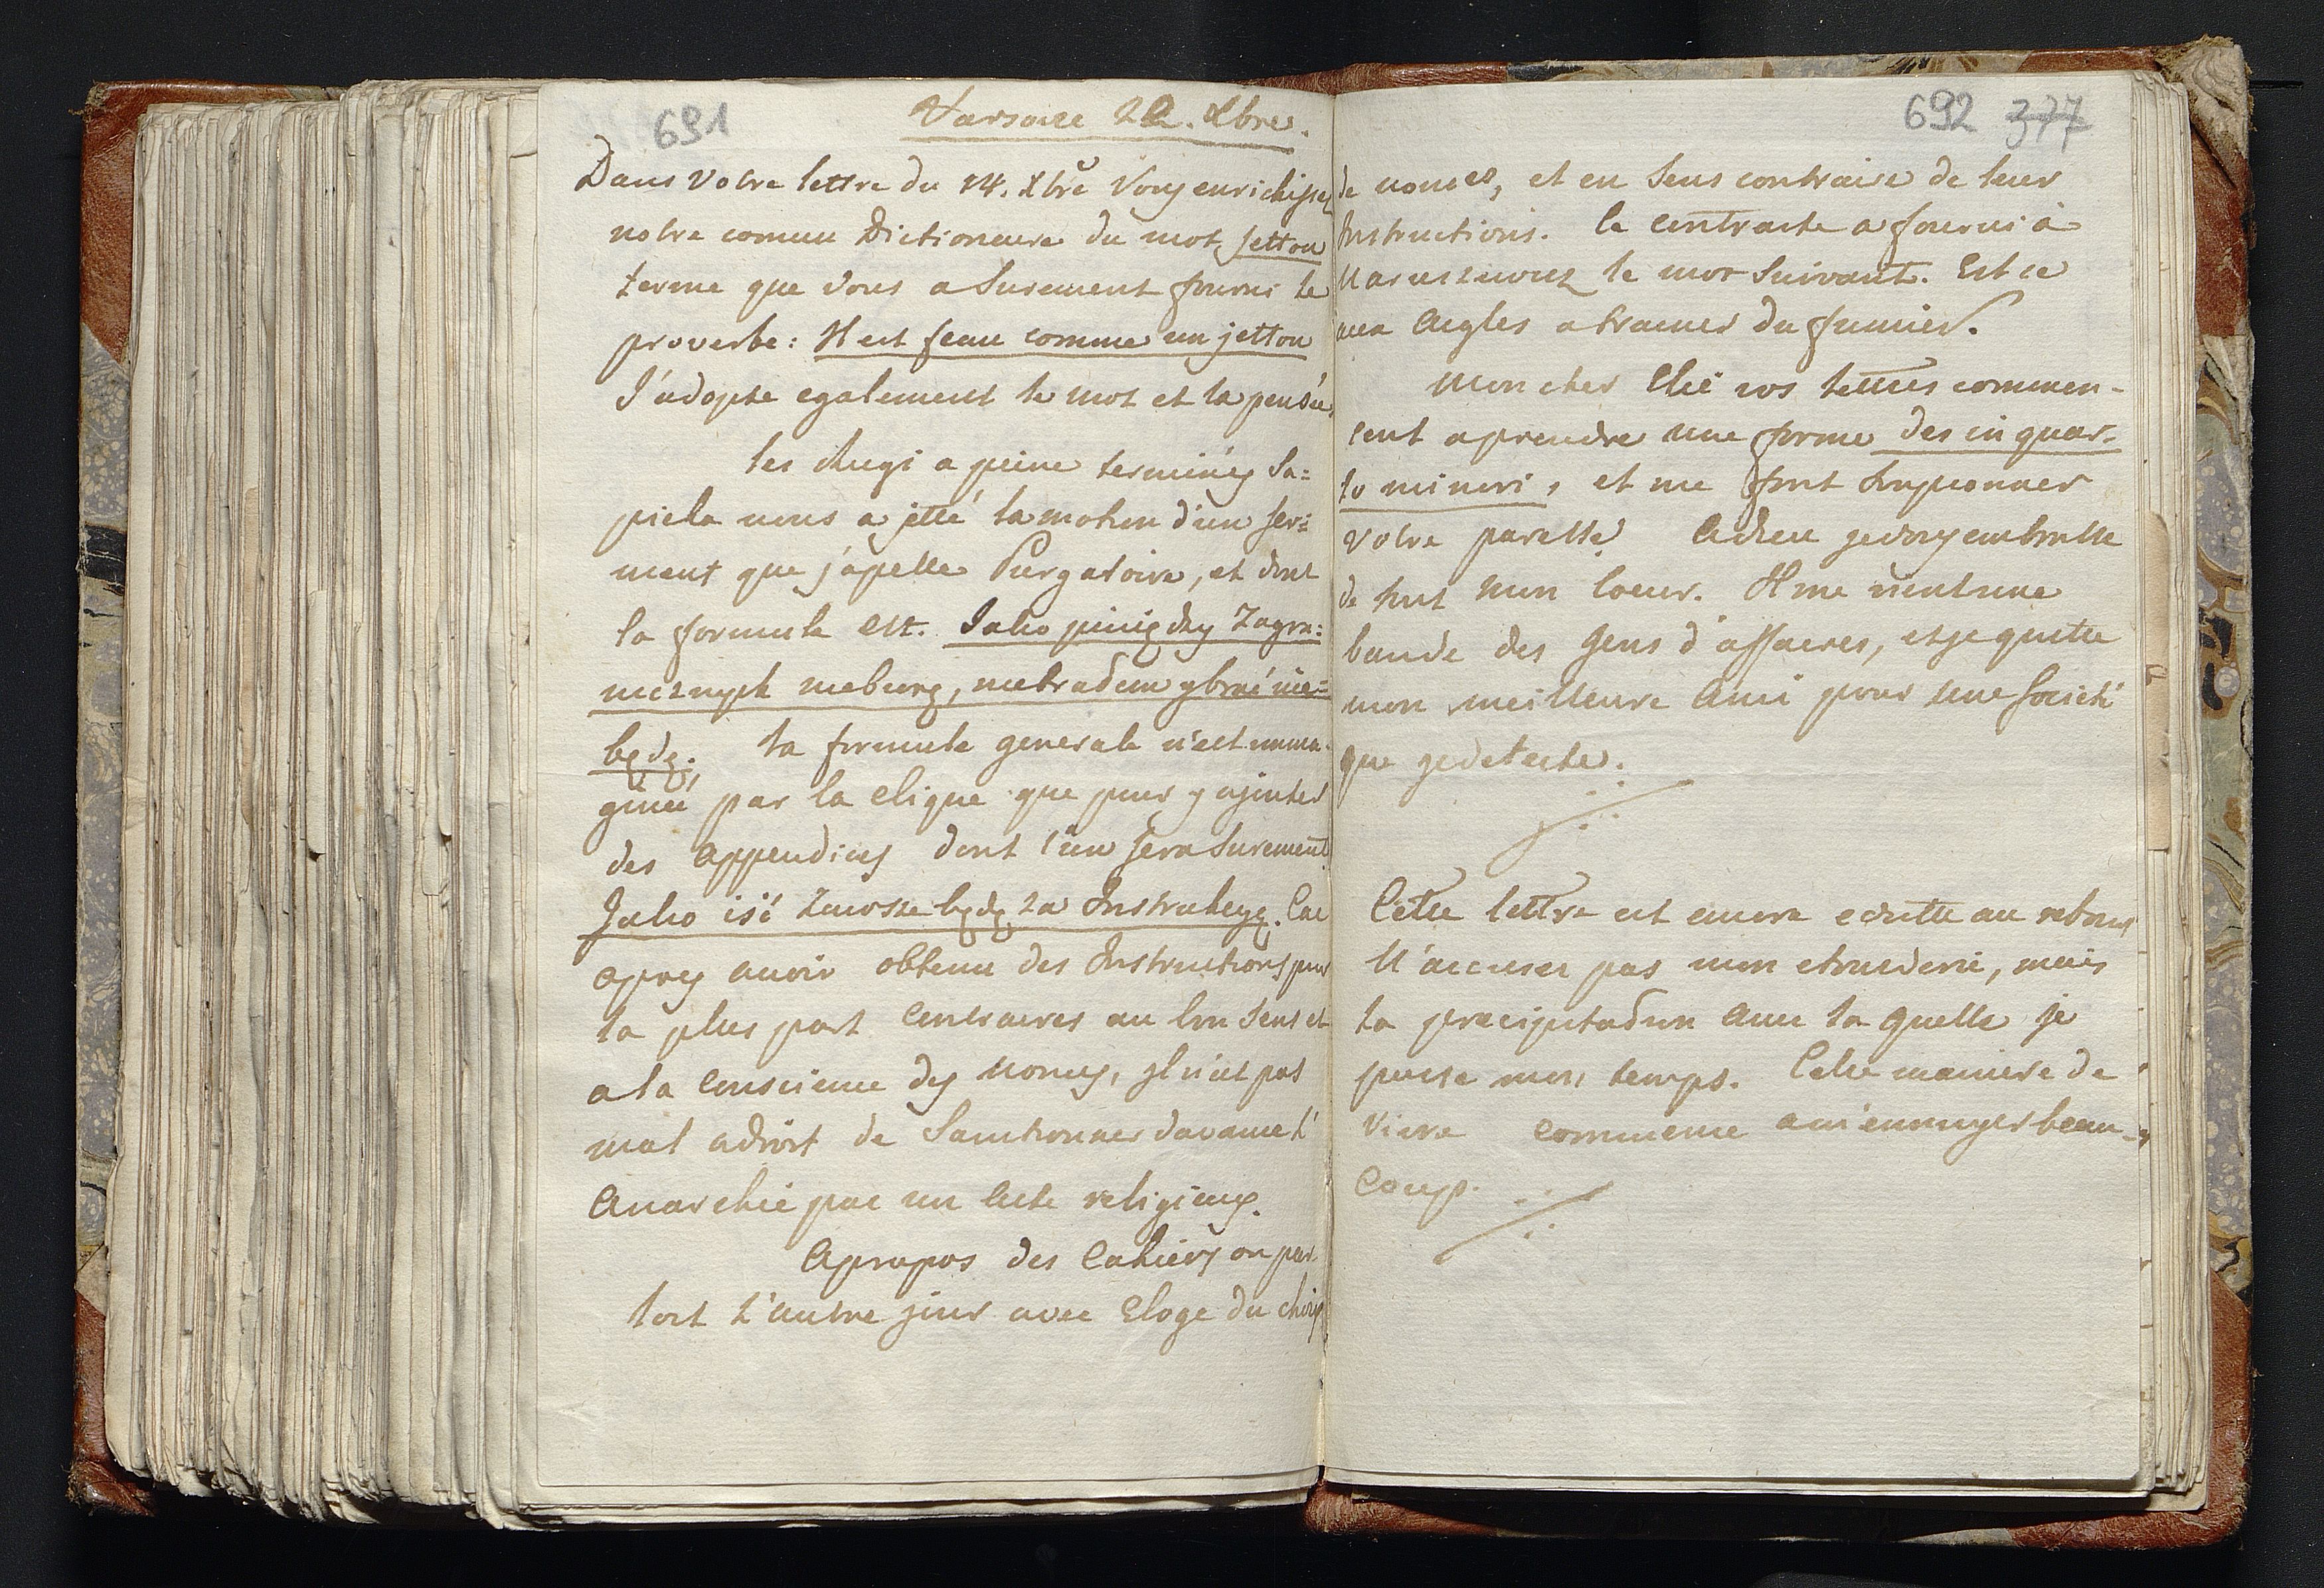 691
Varsovie 22. Xbre.
Dans Votre lettre du 14. Xbre Vous enrichissez
notre comun Dictionaire du mot jetton
terme que Vous a surement fourni le
proverbe: Il est feau comme un jetton
J'adopte egalement le mot et la pensée,
les Rugi a peine terminés Sa=
pieha nous a jetté la motion d'un ser=
ment que j'apelle Purgatoire, et dont
la formule est. Jako pieniędzy Zagra=
nicznych niebiorę, niebrałem y brać nie=
będę. la formule generale n'est imma-
ginée par la clique que pour y ajouter
des appendices dont l'un sera surement
Jako iść zawsze będę za Instrukcyą. Car
apres avoir obtenu des Instructions pour
la plus part contraires au bon sens et
a la conscience des nonces, il n'est pas
mal adroit de Sanctionner davance l'
Anarchie par un acte religieux.
Apropos des Cahiers on par-
loit l'autre jour avec Eloge du choix
692 377
de nonces, et en sens contraire de leur
Instructions. le contraste a fourni à
Naruszewicz le mot suivant. Est ce
aux Aigles a trainer du fumier.
Mon cher Elie vos lettres commen-
cent a prendre une forme des in quar-
to minori, et me font soupconner
votre paresse. Adieu je vous embrasse
de tout mon Coeur. Il me vient une
bande des Gens d'affaires, et je quitte
mon meilleure Ami pour une Societé
que je deteste.
Cette lettre est encore ecritte au rebours
N'accuser pas mon etourderie, mais
la precipitation avec la quelle je
passe mon temps. Cette maniere de
vivre commence a m'ennuyer beau-
coup.